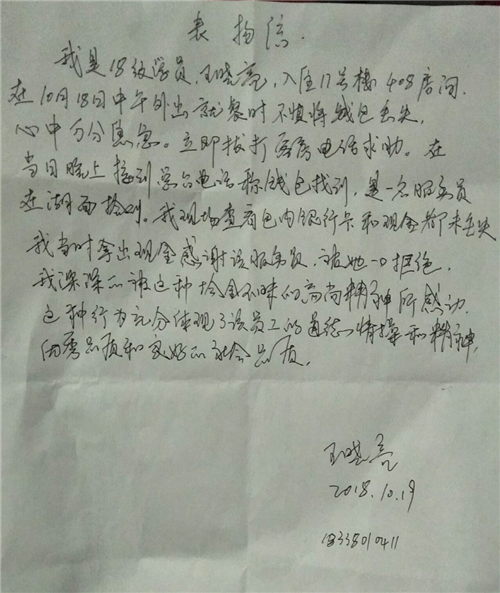 表扬信.
我是18级学员,王晓亮,入住17号楼408房间.
在10月18日中午外出就餐时不慎将钱包丢失,
心中万分焦急。立即拨打宾馆电话求助。在
当日晚上接到总台电话称钱包找到,是一名服务员
在湖西捡到。我现场查看包内银行卡和现金都未丢失
我当时拿出现金感谢该服务员,被她一口拒绝.
我深深的被这种拾金不昧的高尚精神所感动.
这种行为充分体现了该员工的道德情操和精神,
优秀品质和良好的社会品质.
王晓亮
2018.10.19
18335010411